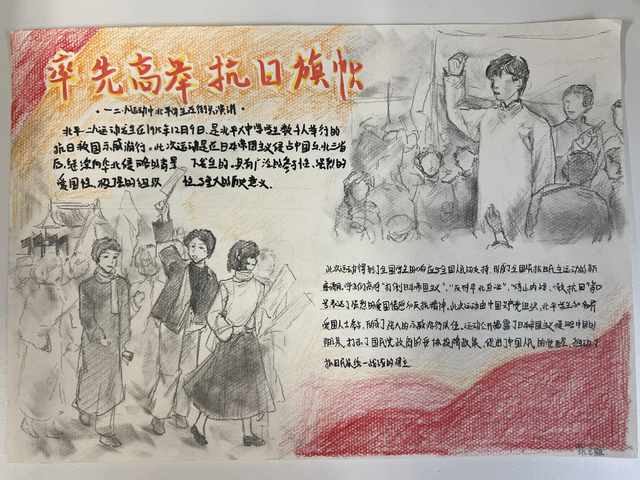 率先高举抗日旗帜
·一二·九运动中北平学生在街头演讲·
北平一二·九运动发生在1935年12月9日,是北平大中学生数千人举行的
抗日救国示威游行。此次运动是在日本帝国主义侵占中国东北三省
后,继续向华北侵略的背景下发生的,具有广泛的参与性、强烈的
爱国性、极强的组织性与重大的历史意义.
此次运动得到了全国学生的响应与全国人民的支持,形成了全国抗日民主运动的新
高潮,学生们高呼"打倒日本帝国主义","反对华北自治","停止内战,一致抗日"等口
号表达了强烈的爱国情感和反抗精神,此次运动由中国共产党组织,北平学生和各界
爱国人士参与,形成了浩大的示威游行队伍,运动公开揭露了日本帝国主义侵略中国的
阴谋,打击了国民党政府的妥协投降政策,促进了中国人民的觉醒,推动了
抗日民族统一战线的建立.